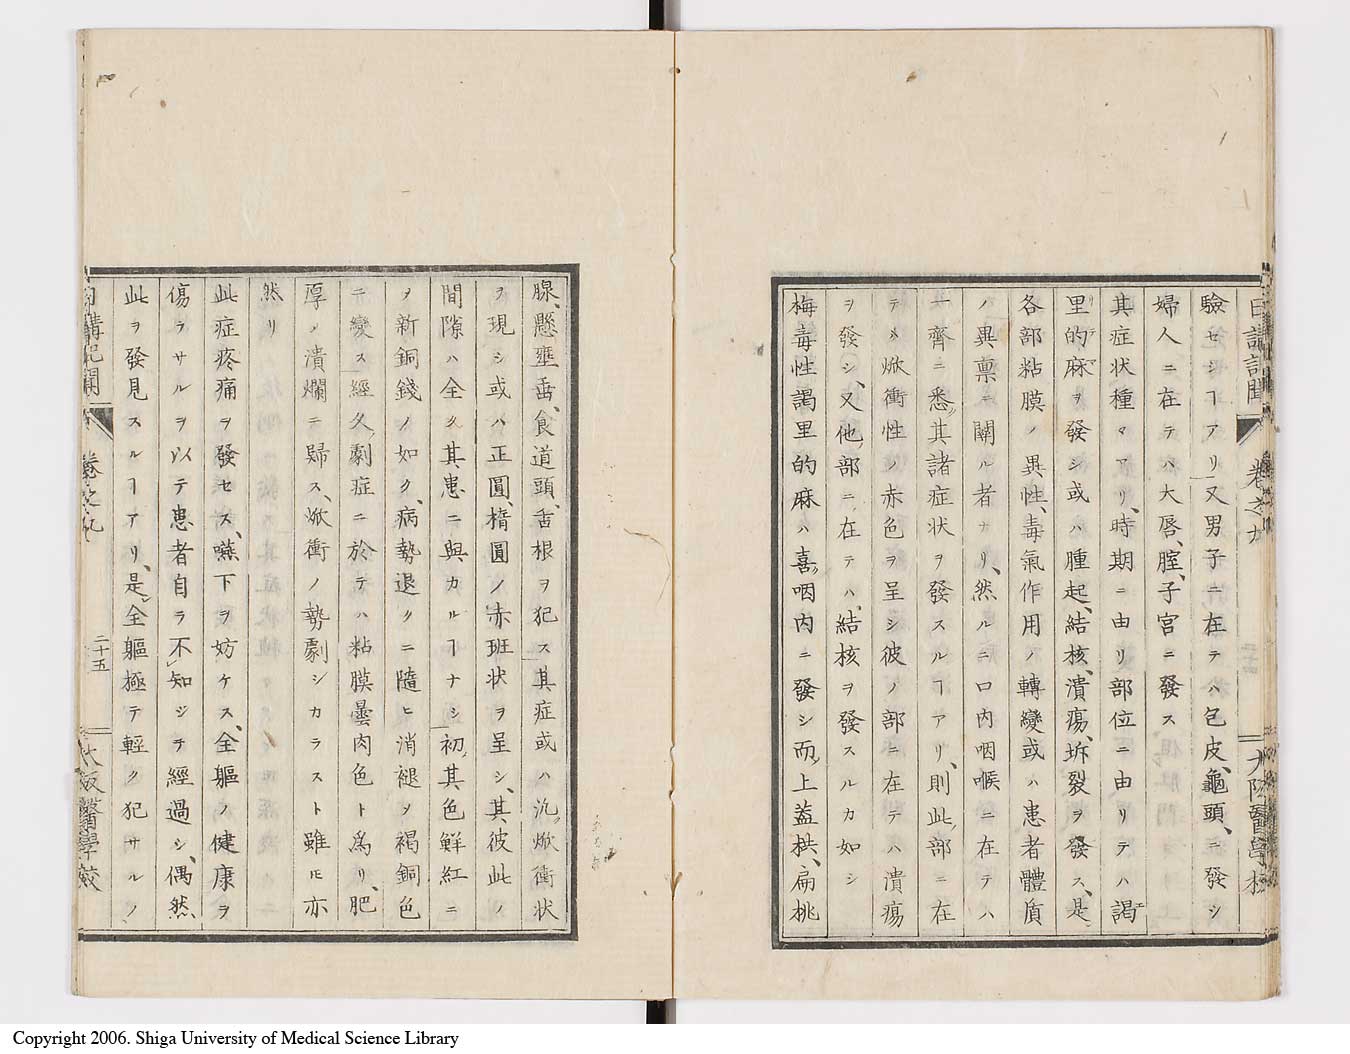 日講記聞 卷之九 二十四 大阪醫學校
驗セシヿアリ、又男子ニ在テハ包皮、龜頭、ニ發シ
婦人ニ在テハ大唇、腟、子宮ニ發ス、
其症状種々アリ、時期ニ由リ部位ニ由リテハ謁
里的麻ヲ發シ或ハ腫起、結核、潰瘍、坼裂ヲ發ス、是
各部粘膜ノ異性、毒氣作用ノ轉變或ハ患者體質
ノ異禀ニ關ル者ナリ、然ルニ口内咽喉ニ在テハ
一齊ニ悉其諸症状ヲ發スルヿアリ、則此部ニ在
テメ焮衝性ノ赤色ヲ呈シ彼ノ部ニ在テハ潰瘍
ヲ發シ、又他部ニ在テハ結核ヲ發スルカ如シ
梅毒性謁里的麻ハ喜咽内ニ發シ而上蓋栱、扁桃
腺、懸壅垂、食道頭、舌根ヲ犯ス其症或ハ氿焮衝状
ヲ現シ或ハ正圓楕圓ノ赤斑状ヲ呈シ、其彼此ノ
間隙ハ全ク其患ニ與カルヿナシ初其色鮮紅ニ
ヲ新銅錢ノ如ク、病勢退クニ隨ヒ消褪ヲ褐銅色
ニ變ス經久劇症ニ於テハ粘膜曇肉色ト爲リ、肥
厚メ潰爛ニ歸ス、焮衝ノ勢劇シカラスト雖ㇳモ亦
然リ
此症疼痛ヲ發セス、嚥下ヲ妨ケス、全軀ノ健康ヲ
傷ラサルヲ以テ患者自ラ不知シテ經過シ、偶然
此ヲ發見スルヿアリ、是全軀極テ輕ク犯サルノ
日講記聞 卷之九 二十五 大阪醫學校
Copyright 2006. Shiga University of Medical Science Library